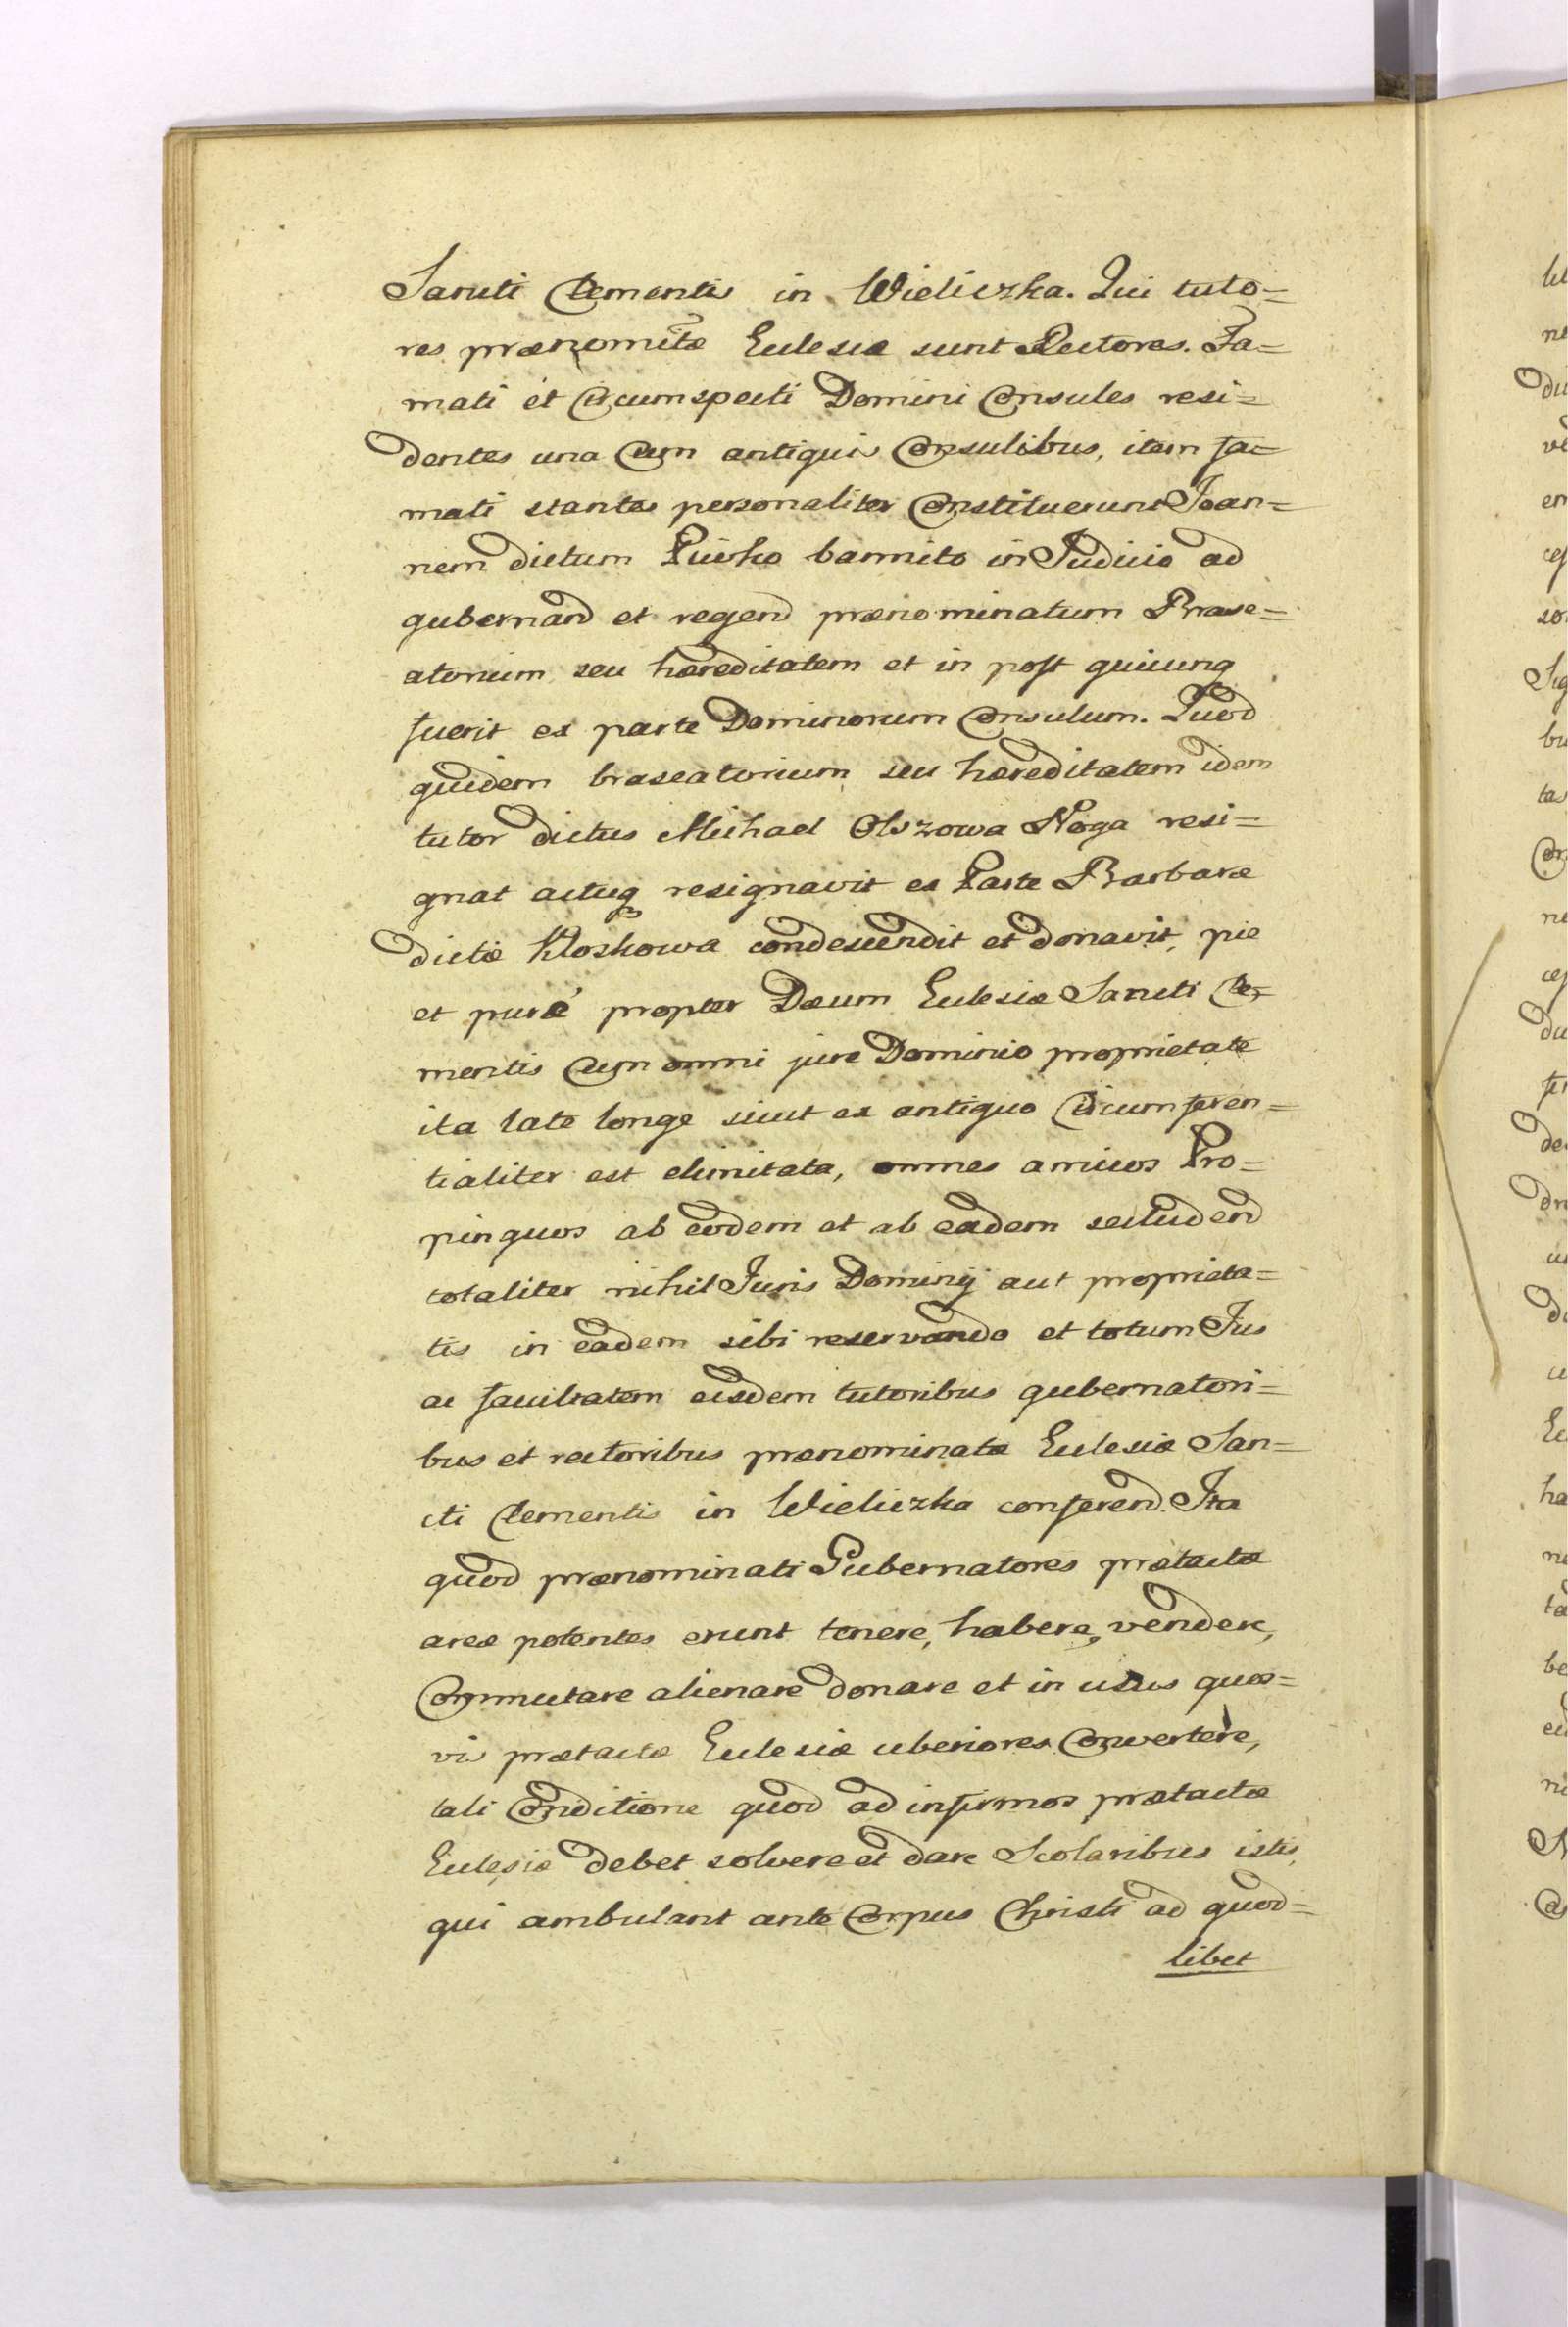 Sancti Clementis in Wieliczka. Qui tuto=
res prænomitæ Eclesiæ sunt Rectores. Fa=
mati et Circumspecti Domini Consules resi=
dentes una Cum antiquis Consulibus, item fa=
mati stantes personaliter Constituerunt Joan=
nem dictum bannito in Judicio ad
gubernand et regend prænominatum Brase=
atorium seu hæreditatem et in post quicunq
fuerit ex parte Dominorum Consulum. Quod
quidem braseatorium seu hæreditatem idem
tutor dictus Michael Olszowa Noga resi=
gnat actuq resignavit ex Parte Barbaræ
dictæ Kloskowa condescendit et donavit, pie
et puré propter Dæum Eclesiæ Sancti Cle=
mentis Cum omni jure Dominio proprietate
ita late longe sicut ex antiquo Circumferen=
tialiter est elimitata, omnes amicos Pro=
pinquos ab eodem et ab eadem secludend
totaliter nihil Juris Dominij aut proprieta=
tis in eadem sibi reservando et totum Jus
ac facultatem eisdem tutoribus gubernatori=
bus et rectoribus prænominatæ Eclesiæ San=
cti Clementis in Wieliczka conferend. Ita
quod prænominati Gubernatores prætactæ
areæ potentes erunt tenere, habere, vendere,
Commutare alienare donare et in usus quos=
vis prætactæ Eclesiæ uberiores Convertere,
tali Conditione quod ad infirmos prætactæ
Eclesiæ debet solvere et dare Scolaribus istis,
qui ambulant ante Corpus Christi ad quod=
libet